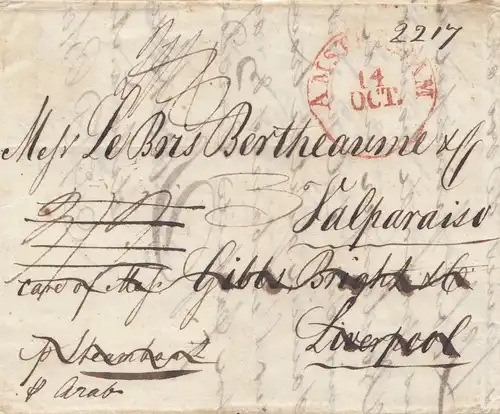 2217
AMSTERDAM
14
OCT.
Messrs Le Bris Bertheaume & Co
Valparaiso
care of Messrs Gibbs Bright & Co
Liverpool
p Steamboat
p Arab